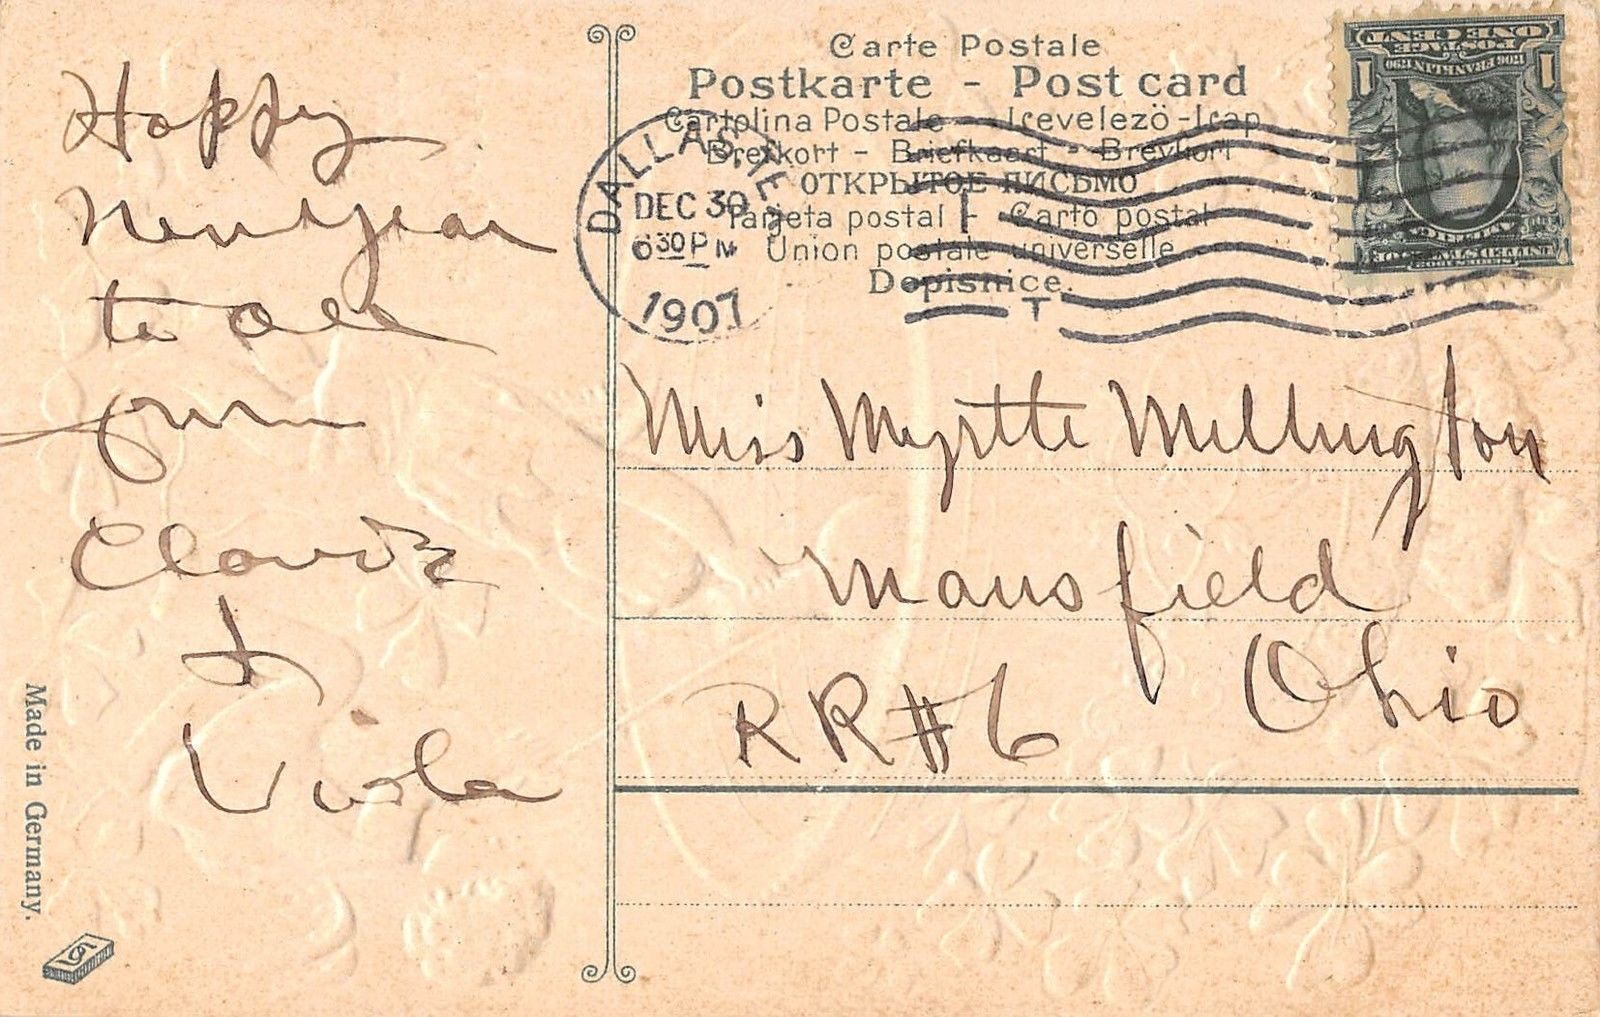 Happy
New Year
to all
from
&
Viola
Made in Germany.
Carte Postale
Postkarte - Post card
Cartolina Postale - Levelezö-Lap
Brevkort - Briefkaart - Brevkort
ОТКРЫТОЕ ПИСЬМО
Tarjeta postal - Carto postal
Union postale universelle
Dopisnice.
DALLAS, TEX.
DEC 30
6 30 PM
1907
T
1 1
ONE CENT
POSTAGE
1706 FRANKLIN 1790
UNITED STATES OF
AMERICA
Miss Myrtle Millington
Mansfield
Ohio
RR#6